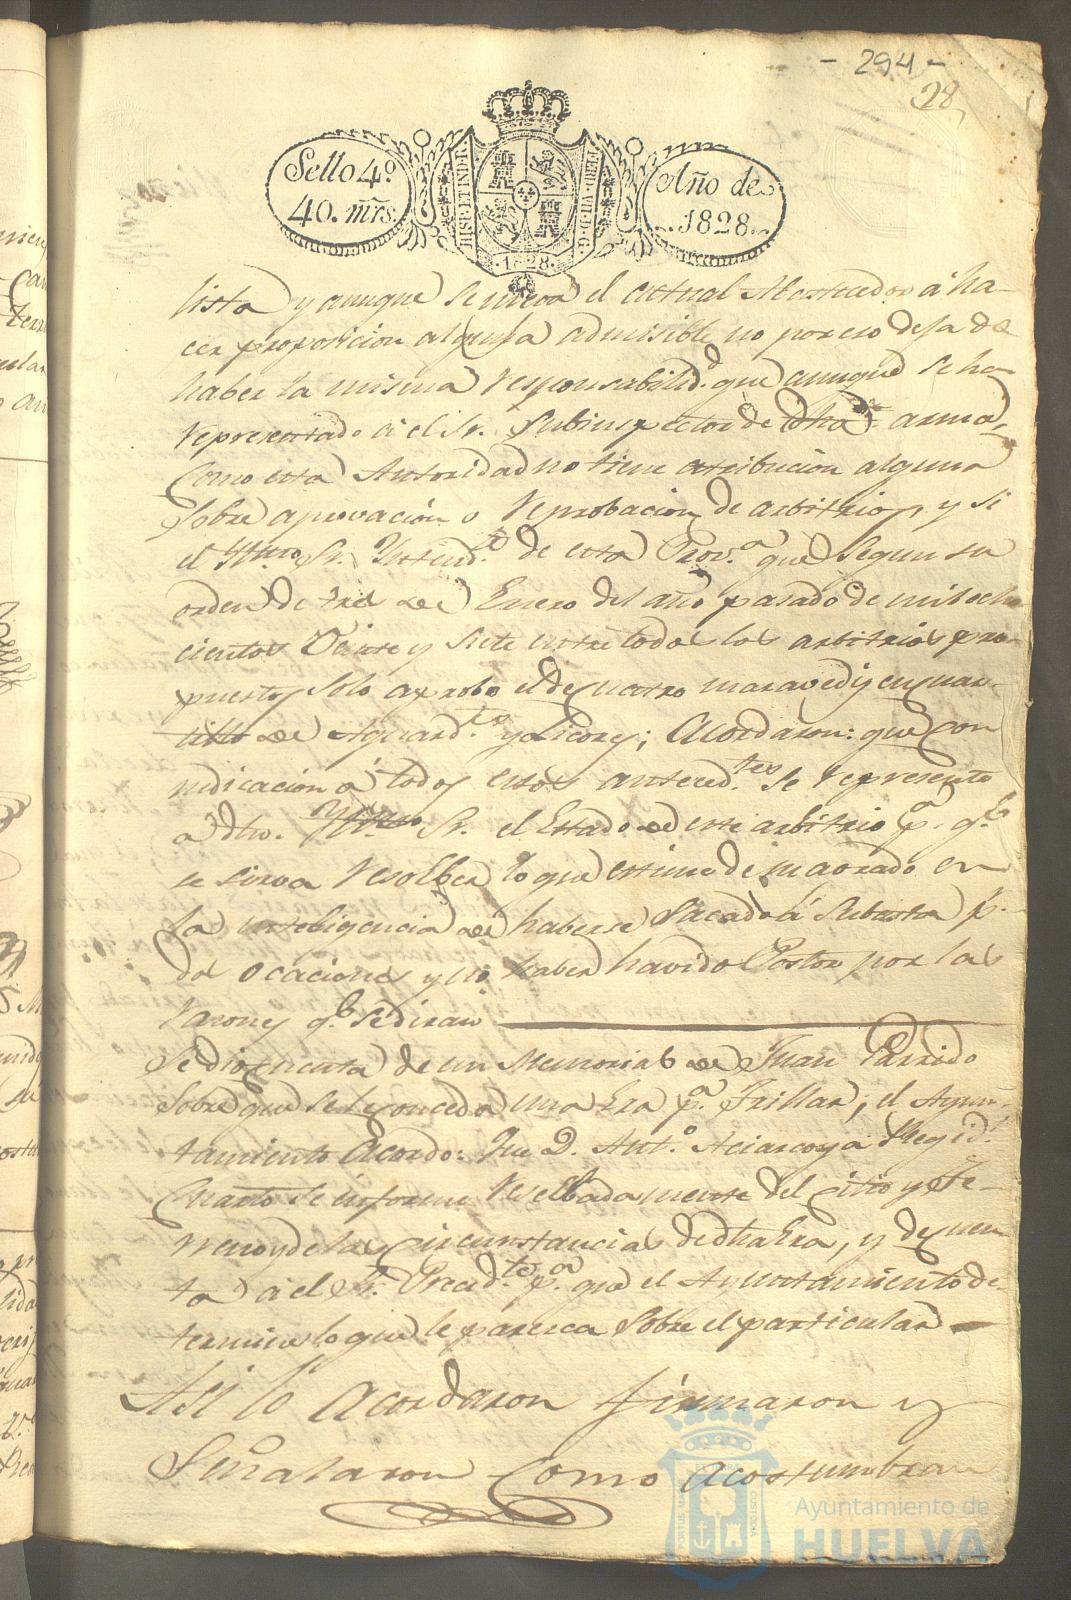 - 294 -
28
Sello 4º
40. mrs.
HISP. ET IND. R.
FERD. VII. D. G.
.1828.
Año de
.1828.
lista y aunque se niega el actual Abastecedor á ha-
cer proposicion alguna admisible no por eso deja de
haber la misma responsabilid.d que aunque se ha
representado á el Sr. Subinspector de dha arma,
Como esta Autoridad no tiene atribucion alguna
Sobre aprovación o reprobacion de arbitrios, y si
el Sr. Yntend.te de esta Prov.a que segun su
orden de tres de Enero del año pasado de mil ocho
cientos Veinte y siete entre todos los arbitrios pro-
puestos solo aprobo el de cuatro maravedis en cuar-
tillo de Aguard.tes y Licores; Acordaron: que con
yndicacion á todos estos anteced.tes se represente
a dho. Sr. el Estado de este arbitrio p.a q.e
se sirva resolber lo que estime de su agrado en
la inteligencia de haberse Sacado á Subasta p.r
dos ocaciones y no haber havido Postor por las
razones q.e se diran
Se dio cuenta de un Memorial de Juan Garrido
sobre que se le conceda una Era p.a Trillar; el Ayun-
tamiento Acordo: Que D. Ant.o Regid.r
Cuarto se informe reserbadamente del sitio y te-
rreno y de las circunstancias de dha Era, y de cuen
ta á el Sr. Presid.te p.a que el Ayuntamiento de-
termine lo que le paresca sobre el particular
Asi lo acordaron firmaron y
Señalaron como acostumbran
PORTUS MARIS
CUSTODIA
Ayuntamiento de
HUELVA